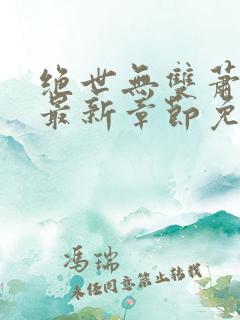 绝世無雙蕭
最新章節免
冯瑞
未经同意禁止转载